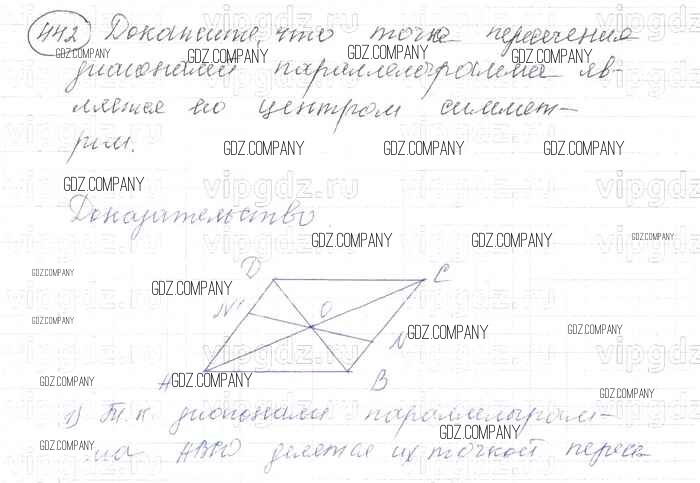 442 Докажите, что точка пересечения
диагоналей параллелограмма яв-
ляется его центром симмет-
рии.
Доказательство
D C
N' O N
A B
1) Т.к диагонали параллелограм-
ма ABCD делятся их точкой перес
GDZ.COMPANY
vipgdz.ru